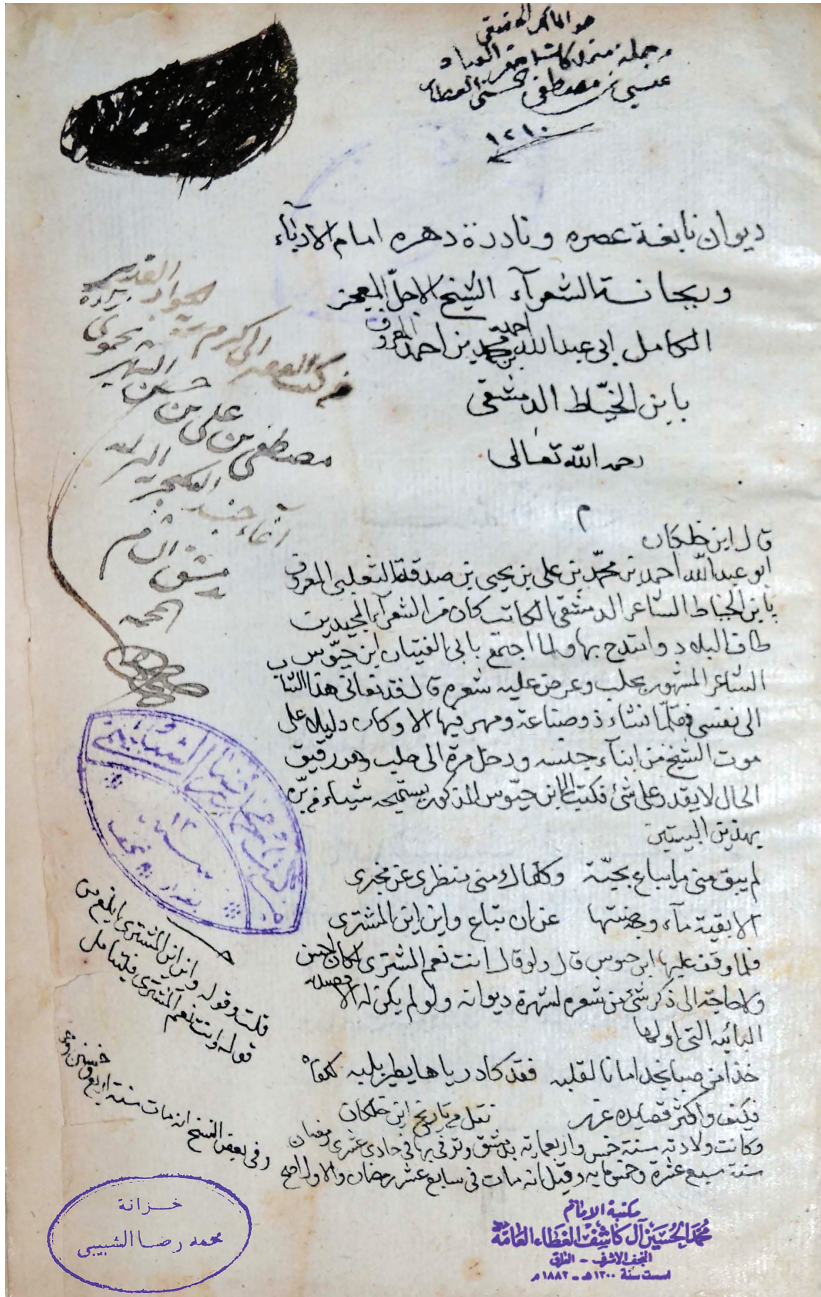 هو المالك الحقيقي
عيسى بن مصطفى العطار
١٢١٠
ديوان نابغة عصره ونادرة دهره امام الادبآء
وريحانة الشعرآء الشيخ الاجلّ
الكامل ابى عبد الله احمد بن محمد بن احمد المعروف
بابن الخيّاط الدمشقى
رحمه الله تعالى
م
قال ابن خلكان
ابو عبد الله احمد بن محمّد بن على بن يحيى بن صدقة التغلبى المعروف
بابن الخياط الشاعر الدمشقى الكاتب كان من الشعرآء المجيدين
طاف البلاد وامتدح بها ولما اجتمع بابى الفتيان ابن حيّوس
الشاعر المشهور بحلب وعرض عليه شعره قال قد نعانى هذا الشاب
الى نفسى فقلّما نشاء ذو صناعة ومهر فيها الا وكان دليلا على
موت الشيخ من ابنآء جنسه ودخل مرة الى حلب وهو رقيق
الحال لا يقدر على شئ فكتب الى ابن حيّوس المذكور يستميحه شيئاء من برّه
بهذين البيتين
لم يبق منى ما يباع بحبّة وكفاك منى منظرى عن مخبرى
الا بقية مآء وجه صنتها عن ان تباع واين اين المشترى
فلما وقف عليها ابن حيوس قال لو قال وانت نعم المشترى لكان احسن
ولا حاجة الى ذكر شئ من شعره لشهرة ديوانه ولو لم يكن له الا قصيدته
البائيه التى اولها
خذا من صبا نجد امانا لقلبه فقد كاد رياها يطير بلبه لكفاه
فكيف واكثر قصايده غرر نقل من تاريخ ابن خلكان
وكانت ولادته سنة خمس واربعمايه بدمشق وتوفى بها فى حادى عشر رمضان
سنة سبع عشرة وخمسمايه وقيل انه مات فى سابع عشر رمضان والاول اصح
الجواد القدير
مصطفى بن على بن حسن الشهير
دمشق الشام
قلت وقوله واين اين المشترى ابلغ من
قوله وانت نعم المشترى فليتامل
وفى بعض النسخ انه مات سنة
خزانة
محمد رضا الشبيبي
مكتبة الامام
محمد الحسين آل كاشف الغطاء العامة
النجف الاشرف - العراق
اسست سنة ١٣٠٠هـ - ١٨٨٢م